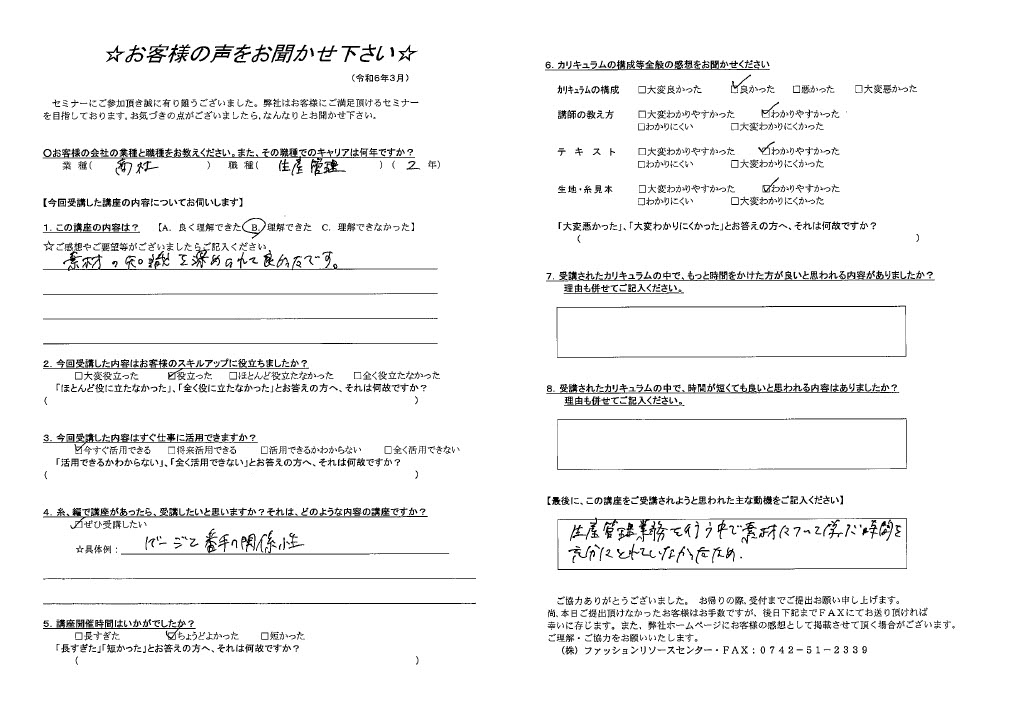 ☆お客様の声をお聞かせ下さい☆
（令和6年3月）
セミナーにご参加頂き誠に有り難うございました。弊社はお客様にご満足頂けるセミナー
を目指しております。お気づきの点がございましたら、なんなりとお聞かせ下さい。
〇お客様の会社の業種と職種をお教えください。また、その職種でのキャリアは何年ですか？
業 種（ 商社 ） 職 種（ 生産管理 ）（ 2 年）
【今回受講した講座の内容についてお伺いします】
1. この講座の内容は？ 【A. 良く理解できた B. 理解できた C. 理解できなかった】
☆ご感想やご要望等がございましたらご記入ください
素材の知識を深められて良かったです。
2. 今回受講した内容はお客様のスキルアップに役立ちましたか？
□大変役立った ☑役立った □ほとんど役立たなかった □全く役立たなかった
「ほとんど役に立たなかった」、「全く役に立たなかった」とお答えの方へ、それは何故ですか？
（ ）
3. 今回受講した内容はすぐ仕事に活用できますか？
☑今すぐ活用できる □将来活用できる □活用できるかわからない □全く活用できない
「活用できるかわからない」、「全く活用できない」とお答えの方へ、それは何故ですか？
（ ）
4. 糸、編で講座があったら、受講したいと思いますか？それは、どのような内容の講座ですか？
☑ぜひ受講したい
☆具体例： ゲージと番手の関係性
5. 講座開催時間はいかがでしたか？
□長すぎた ☑ちょうどよかった □短かった
「長すぎた」「短かった」とお答えの方へ、それは何故ですか？
（ ）
6. カリキュラムの構成等全般の感想をお聞かせください
カリキュラムの構成 □大変良かった ☑良かった □悪かった □大変悪かった
講師の教え方 □大変わかりやすかった ☑わかりやすかった
□わかりにくい □大変わかりにくかった
テ キ ス ト □大変わかりやすかった ☑わかりやすかった
□わかりにくい □大変わかりにくかった
生地・糸見本 □大変わかりやすかった ☑わかりやすかった
□わかりにくい □大変わかりにくかった
「大変悪かった」、「大変わかりにくかった」とお答えの方へ、それは何故ですか？
（ ）
7. 受講されたカリキュラムの中で、もっと時間をかけた方が良いと思われる内容がありましたか？
理由も併せてご記入ください。
8. 受講されたカリキュラムの中で、時間が短くても良いと思われる内容はありましたか？
理由も併せてご記入ください。
【最後に、この講座をご受講されようと思われた主な動機をご記入ください】
生産管理業務を行う中で素材について学ぶ時間を
充分にとれていなかったため.
ご協力ありがとうございました。 お帰りの際、受付までご提出お願い申し上げます。
尚、本日ご提出頂けなかったお客様はお手数ですが、後日下記までFAXにてお送り頂ければ
幸いに存じます。また、弊社ホームページにお客様の感想として掲載させて頂く場合がございます。
ご理解・ご協力をお願いいたします。
（株）ファッションリソースセンター・FAX：0742－51－2339